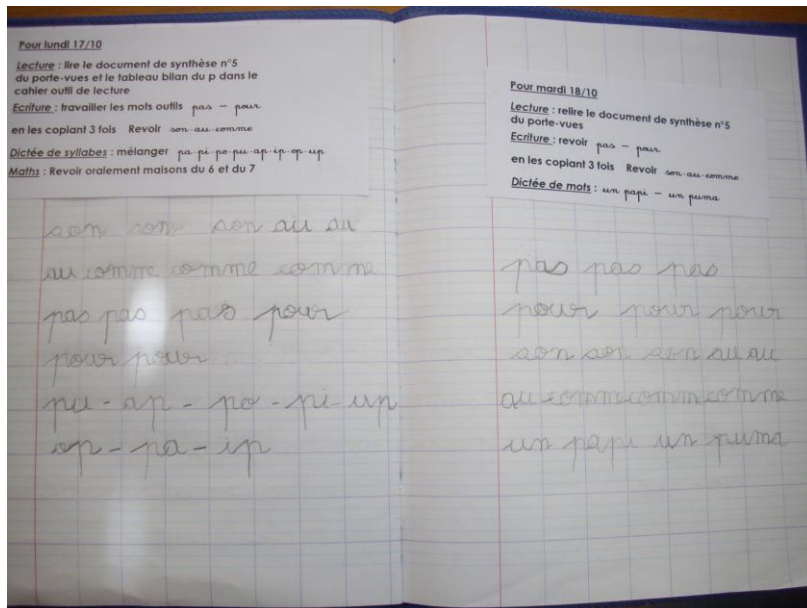 Pour lundi 17/10
Lecture : lire le document de synthèse n°5
du porte-vues et le tableau bilan du p dans le
cahier outil de lecture
Ecriture : travailler les mots outils pas – pour
en les copiant 3 fois Revoir son-au-comme
Dictée de syllabes : mélanger pa-pi-po-pu-ap-ip-op-up
Maths : Revoir oralement maisons du 6 et du 7
son son son au au
au comme comme comme
pas pas pas pour
pour pour
pu - ap - po - pi - up
op - pa - ip
Pour mardi 18/10
Lecture : relire le document de synthèse n°5
du porte-vues
Ecriture : revoir pas – pour
en les copiant 3 fois Revoir son-au-comme
Dictée de mots : un papi – un puma
pas pas pas
pour pour pour
son son son au au
au comme comme comme
un papi un puma